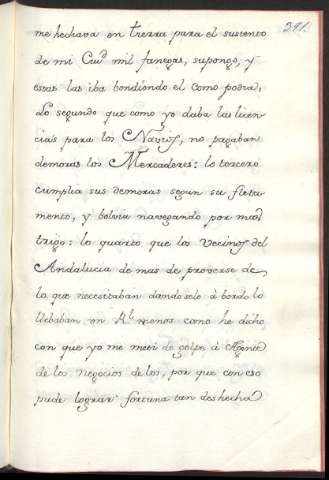 291.
me hechava en tierra para el sustento
de mi Ciu.d mil fanegas, supongo, y
estas las iba bendiendo el como podia,
Lo segundo que como yo daba las licen
cias para los Navios, no pagaban
demoras los Mercaderes: lo tercero
cumplia sus demoras segun su fleta
mento, y bolvia navegando por mas
trigo: lo quarto que los Vecinos del
Andalucia de mas de proverse de
lo que necesitaban dandoselo à bordo lo
llebaban un R.l menos como he dicho
con que yo me meti de golpe à Agente
de los negocios de los, por que con eso
pude lograr fortuna tan deshecha